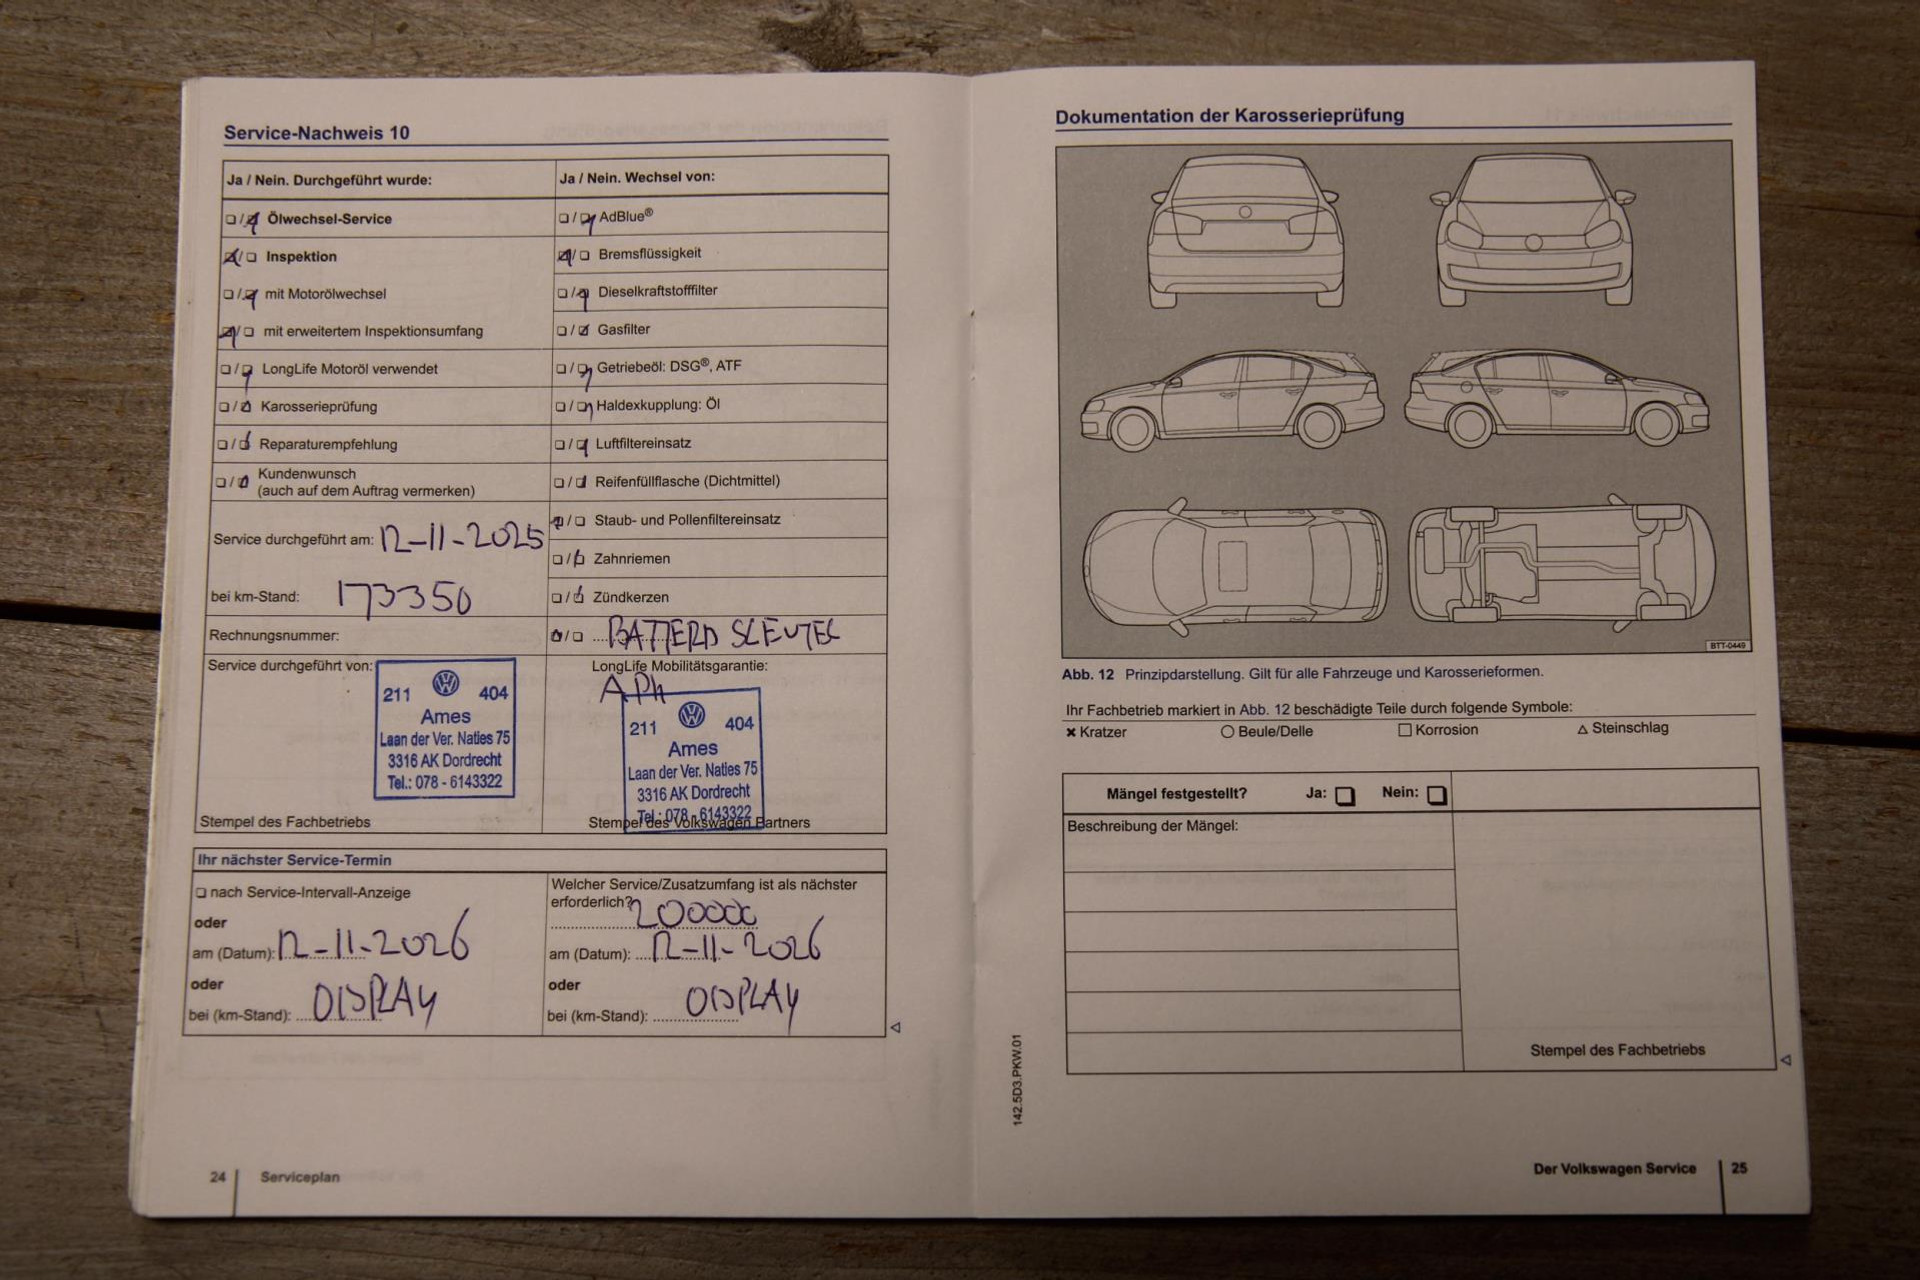 Service-Nachweis 10
Ja / Nein. Durchgeführt wurde:
Ölwechsel-Service
Inspektion
mit Motorölwechsel
mit erweitertem Inspektionsumfang
LongLife Motoröl verwendet
Karosserieprüfung
Reparaturempfehlung
Kundenwunsch
(auch auf dem Auftrag vermerken)
Service durchgeführt am: 12-11-2025
bei km-Stand: 173350
Rechnungsnummer:
Service durchgeführt von:
211 404
Ames
Laan der Ver. Naties 75
3316 AK Dordrecht
Tel.: 078 - 6143322
Stempel des Fachbetriebs
Ja / Nein. Wechsel von:
AdBlue®
Bremsflüssigkeit
Dieselkraftstofffilter
Gasfilter
Getriebeöl: DSG®, ATF
Haldexkupplung: Öl
Luftfiltereinsatz
Reifenfüllflasche (Dichtmittel)
Staub- und Pollenfiltereinsatz
Zahnriemen
Zündkerzen
SLEUTEL
LongLife Mobilitätsgarantie:
211 404
Ames
Laan der Ver. Naties 75
3316 AK Dordrecht
Tel.: 078 - 6143322
Stempel des Volkswagen Partners
Ihr nächster Service-Termin
nach Service-Intervall-Anzeige
oder
am (Datum): 12-11-2026
oder
bei (km-Stand): DISPLAY
Welcher Service/Zusatzumfang ist als nächster
erforderlich? 200000
am (Datum): 12-11-2026
oder
bei (km-Stand): DISPLAY
24 Serviceplan
Dokumentation der Karosserieprüfung
BTT-0449
Abb. 12 Prinzipdarstellung. Gilt für alle Fahrzeuge und Karosserieformen.
Ihr Fachbetrieb markiert in Abb. 12 beschädigte Teile durch folgende Symbole:
× Kratzer ○ Beule/Delle □ Korrosion △ Steinschlag
Mängel festgestellt? Ja: Nein:
Beschreibung der Mängel:
Stempel des Fachbetriebs
142.5D3.PKW.01
Der Volkswagen Service 25